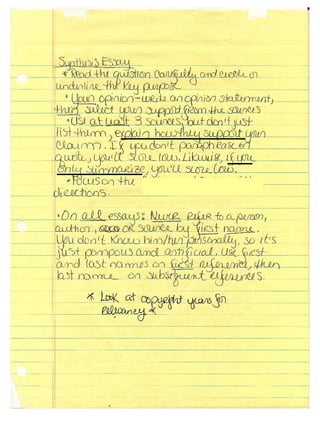 Synthesis Essay
* Read the question carefully and circle or
underline the key purpose
* Your opinion - write an opinion statement,
then select your support from the sources
* Use at least 3 sources, but don't just
list them, explain how they support your
claim. If you don't paraphrase or
quote, you'll score low. Likewise, if you
only summarize, you'll score low.
* Focus on the
directions.
• On all essays: Never refer to a person,
author, or source by first name.
You don't know him/her personally, so it's
just pompous and artificial. Use first
and last names on first reference, then
last name on subsequent references.
* Look at copyright years for
relevancy *